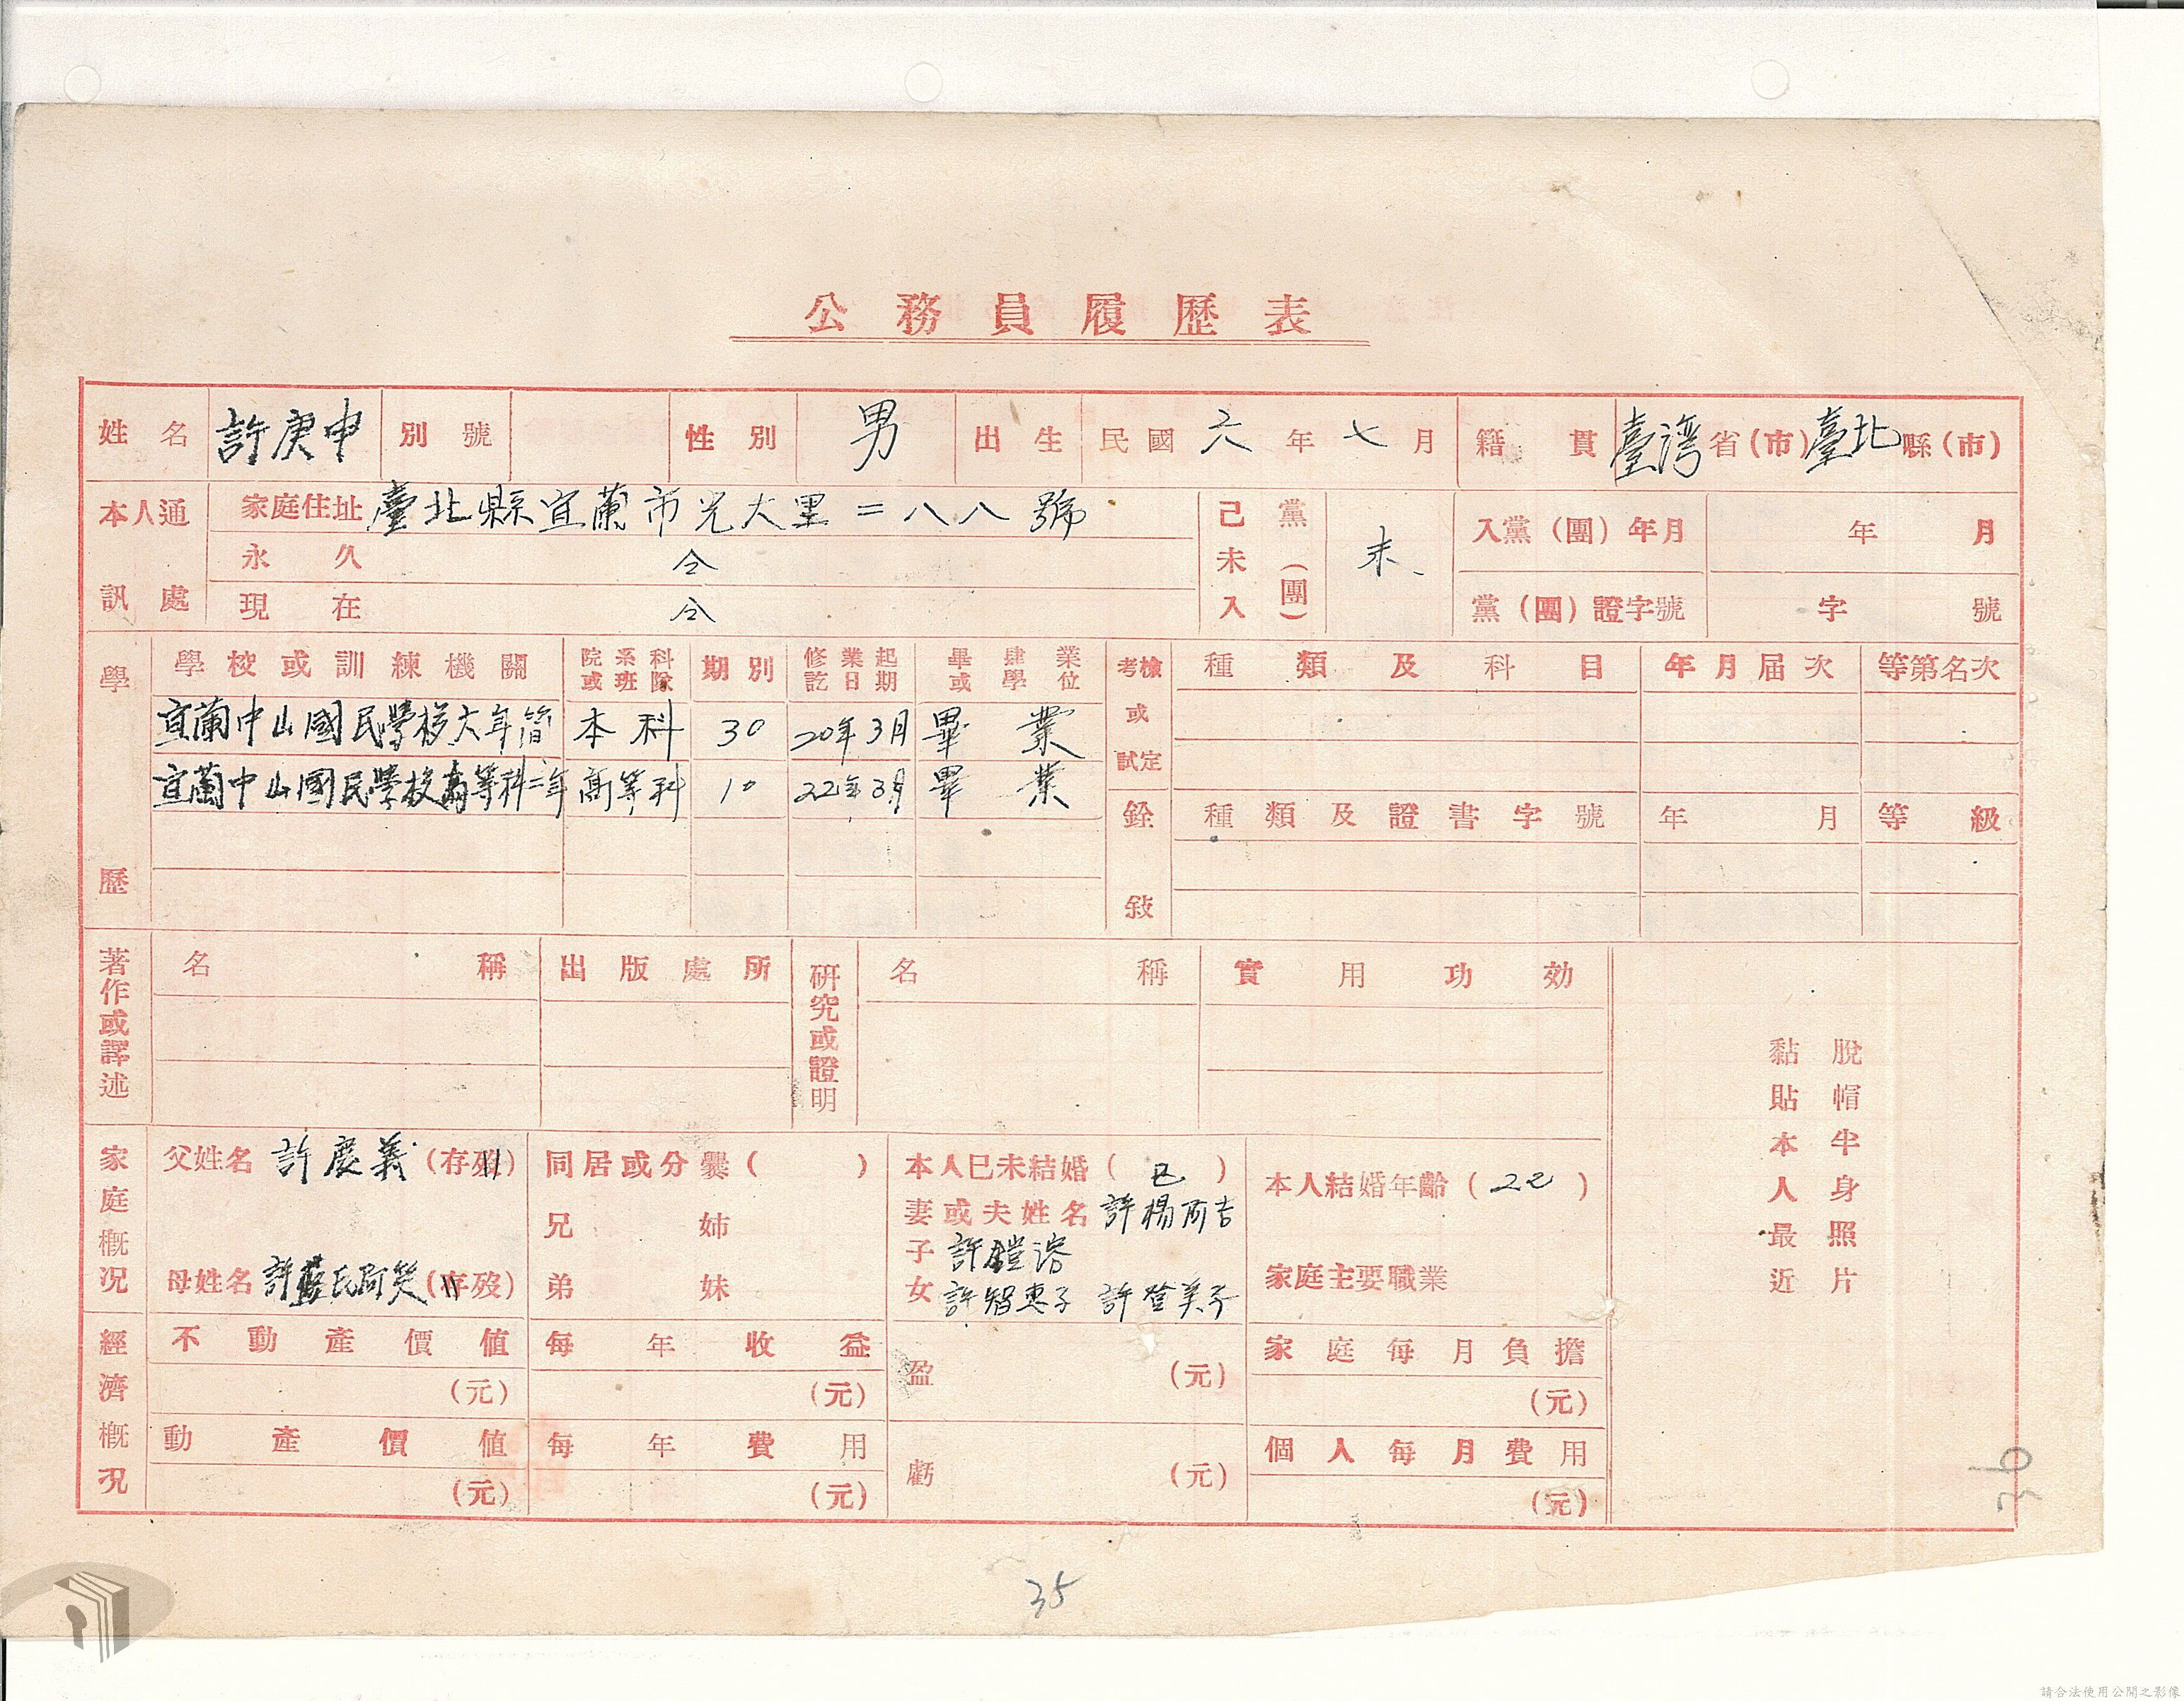 公務員履歷表
姓名 許庚申 別號 性別 男 出生 民國六年七月 籍貫 臺灣省(市)臺北縣(市)
本人通訊處 家庭住址 臺北縣宜蘭市光大里二八八號
永久 仝
現在 仝
已未入黨(團) 未、 入黨(團)年月 年 月
黨(團)證字號 字 號
學歷 學校或訓練機關 院系科或班隊 期別 修業起訖日期 畢肄業或學位
宜蘭中山國民學校六年 本科 30 20年3月 畢業
宜蘭中山國民學校高等科二年 高等科 10 22年3月 畢業
考檢或試定 種類及科目 年月屆次 等第名次
銓敍 種類及證書字號 年月 等級
著作或譯述 名稱 出版處所
研究或證明 名稱 實用功効
脫帽半身照片
黏貼本人最近
家庭概况 父姓名 許慶義 (存歿) 同居或分爨( ) 本人已未結婚(已) 本人結婚年齡(22)
兄 姉 妻或夫姓名 許楊阿吉
子 許鎧溶
母姓名 許氏阿笑 (存歿) 弟 妹 女 許智惠子 許登美子 家庭主要職業
經濟概况 不動產價值 (元) 每年收益 (元) 盈 (元) 家庭每月負擔 (元)
動產價值 (元) 每年費用 (元) 虧 (元) 個人每月費用 (元)
36
35
請合法使用公開之影像